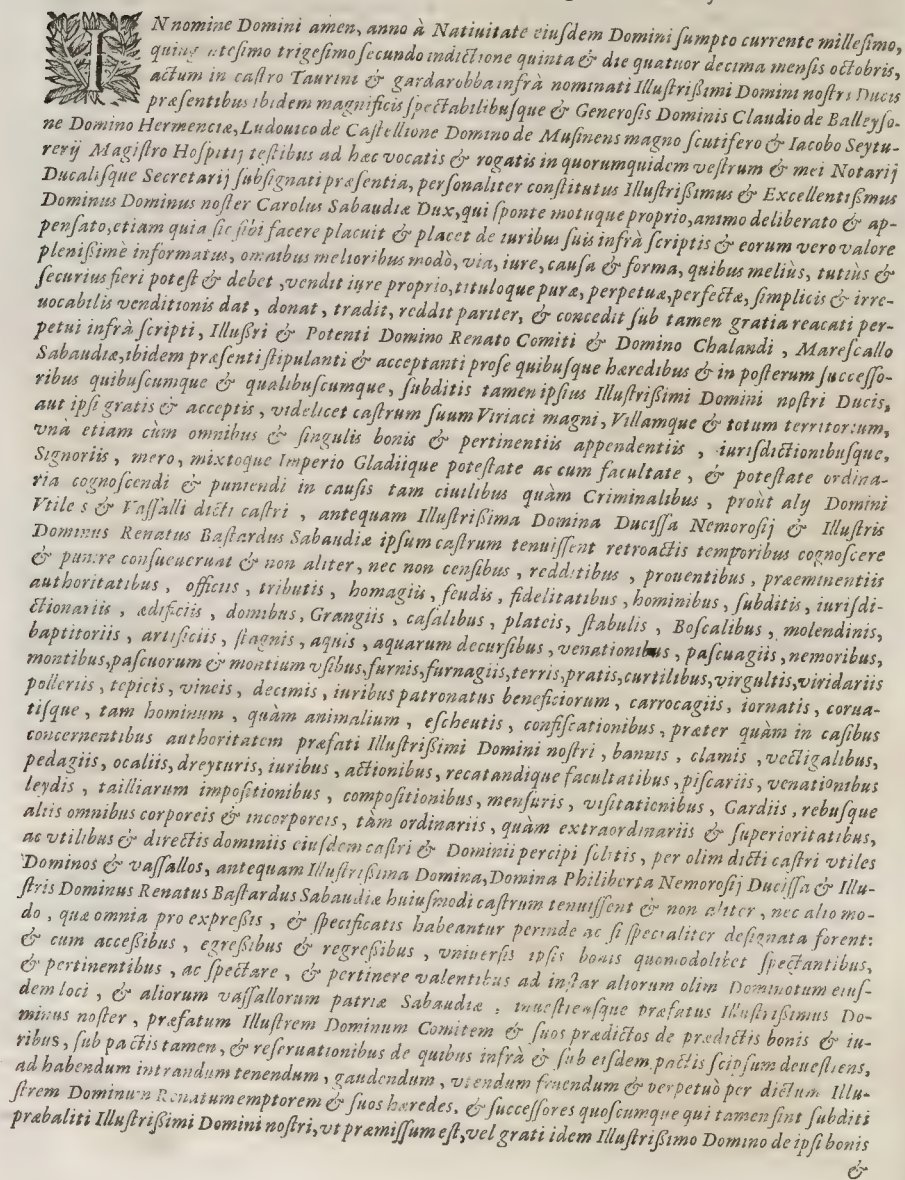 IN nomine Domini amen, anno à Natiuitate eiuſdem Domini ſumpto currente milleſimo,
quingenteſimo trigeſimo ſecundo indictione quinta & die quatuor decima menſis octobris,
actum in caſtro Taurini & gardarobba infrà nominati Illuſtrißimi Domini noſtri Ducis
præſentibus ibidem magnificis ſpectabilibuſque & Generoſis Dominis Claudio de Balleyſo-
ne Domino Hermenciæ, Ludouico de Caſtellione Domino de Muſinens magno ſcutifero & Iacobo Seytu-
rerij Magiſtro Hoſpitij teſtibus ad hæc vocatis & rogatis in quorumquidem veſtrum & mei Notarij
Ducaliſque Secretarij ſubſignati præſentia, perſonaliter conſtitutus Illuſtrißimus & Excellentißmus
Dominus Dominus noſter Carolus Sabaudiæ Dux, qui ſponte motuque proprio, animo deliberato & ap-
penſato, etiam quia ſic ſibi facere placuit & placet de iuribus ſuis infrà ſcriptis & eorum vero valore
pleniſſimè informatus, omnibus melioribus modò, via, iure, cauſa & forma, quibus meliùs, tutiùs &
ſecurius fieri poteſt & debet, vendit iure proprio, tituloque puræ, perpetuæ, perfectæ, ſimplicis & irre-
uocabilis venditionis dat, donat, tradit, reddit pariter, & concedit ſub tamen gratia reacati per-
petui infrà ſcripti, Illuſtri & Potenti Domino Renato Comiti & Domino Chalandi, Mareſcallo
Sabaudiæ, ibidem præſenti ſtipulanti & acceptanti proſe quibuſque hæredibus & in poſterum ſucceſſo-
ribus quibuſcumque & qualibuſcumque, ſubditis tamen ipſius Illuſtrißimi Domini noſtri Ducis,
aut ipſi gratis & acceptis, videlicet caſtrum ſuum Viriaci magni, Villamque & totum territorium,
vnà etiam cùm omnibus & ſingulis bonis & pertinentiis appendentiis, iuriſdictionibuſque,
Signoriis, mero, mixtoque Imperio Gladiique poteſtate ac cum facultate, & poteſtate ordina-
ria cognoſcendi & puniendi in cauſis tam ciuilibus quàm Criminalibus, proùt alij Domini
Vtiles & Vaſſalli dicti caſtri, antequam Illuſtrißima Domina Duciſſa Nemoroſij & Illuſtris
Dominus Renatus Baſtardus Sabaudiæ ipſum caſtrum tenuiſſent retroactis temporibus cognoſcere
& punire conſueuerunt & non aliter, nec non cenſibus, redditibus, prouentibus, præeminentiis
authoritatibus, officiis, tributis, homagiis, feudis, fidelitatibus, hominibus, ſubditis, iuriſdi-
ctionariis, ædificiis, domibus, Grangiis, caſalibus, plateis, ſtabulis, Boſcalibus, molendinis,
baptitoriis, artificiis, ſtagnis, aquis, aquarum decurſibus, venationibus, paſcuagiis, nemoribus,
montibus, paſcuorum & montium vſibus, furnis, furnagiis, terris, pratis, curtilibus, virgultis, viridariis
polleriis, tepicis, vineis, decimis, iuribus patronatus beneficiorum, carrocagiis, iornatis, corua-
tiſque, tam hominum, quàm animalium, eſcheutis, confiſcationibus, præter quàm in caſibus
concernentibus authoritatem præfati Illuſtrißimi Domini noſtri, bannis, clamis, vectigalibus,
pedagiis, ocaliis, dreyturis, iuribus, actionibus, recatandique facultatibus, piſcariis, venationibus
leydis, tailliarum impoſitionibus, compoſitionibus, menſuris, viſitationibus, Gardiis, rebuſque
aliis omnibus corporeis & incorporeis, tàm ordinariis, quàm extraordinariis & ſuperioritatibus,
ac vtilibus & directis dominiis eiuſdem caſtri & Dominii percipi ſolitis, per olim dicti caſtri vtiles
Dominos & vaſſallos, antequam Illuſtrißima Domina, Domina Philiberta Nemoroſij Duciſſa & Illu-
ſtris Dominus Renatus Baſtardus Sabaudiæ huiuſmodi caſtrum tenuiſſent & non aliter, nec alio mo-
do, quæ omnia pro expreßis, & ſpecificatis habeantur perinde ac ſi ſpecialiter deſignata forent:
& cum acceßibus, egreßibus & regreßibus, vniuerſis ipſis bonis quomodolibet ſpectantibus,
& pertinentibus, ac ſpectare, & pertinere valentibus ad inſtar aliorum olim Dominotum eiuſ-
dem loci, & aliorum vaſſallorum patriæ Sabaudiæ, inueſtienſque præfatus Illuſtrißimus Do-
minus noſter, præfatum Illuſtrem Dominum Comitem & ſuos prædictos de prædictis bonis & iu-
ribus, ſub pactis tamen, & reſeruationibus de quibus infrà & ſub eiſdem pactis ſeipſum deueſtiens,
ad habendum intrandum tenendum, gaudendum, vtendum fruendum & perpetuò per dictum Illu-
ſtrem Dominum Renatum emptorem & ſuos hæredes, & ſucceſſores quoſcumque qui tamen ſint ſubditi
præbaliti Illuſtrißimi Domini noſtri, vt præmiſſum eſt, vel grati idem Illuſtrißimo Domino de ipſi bonis
&